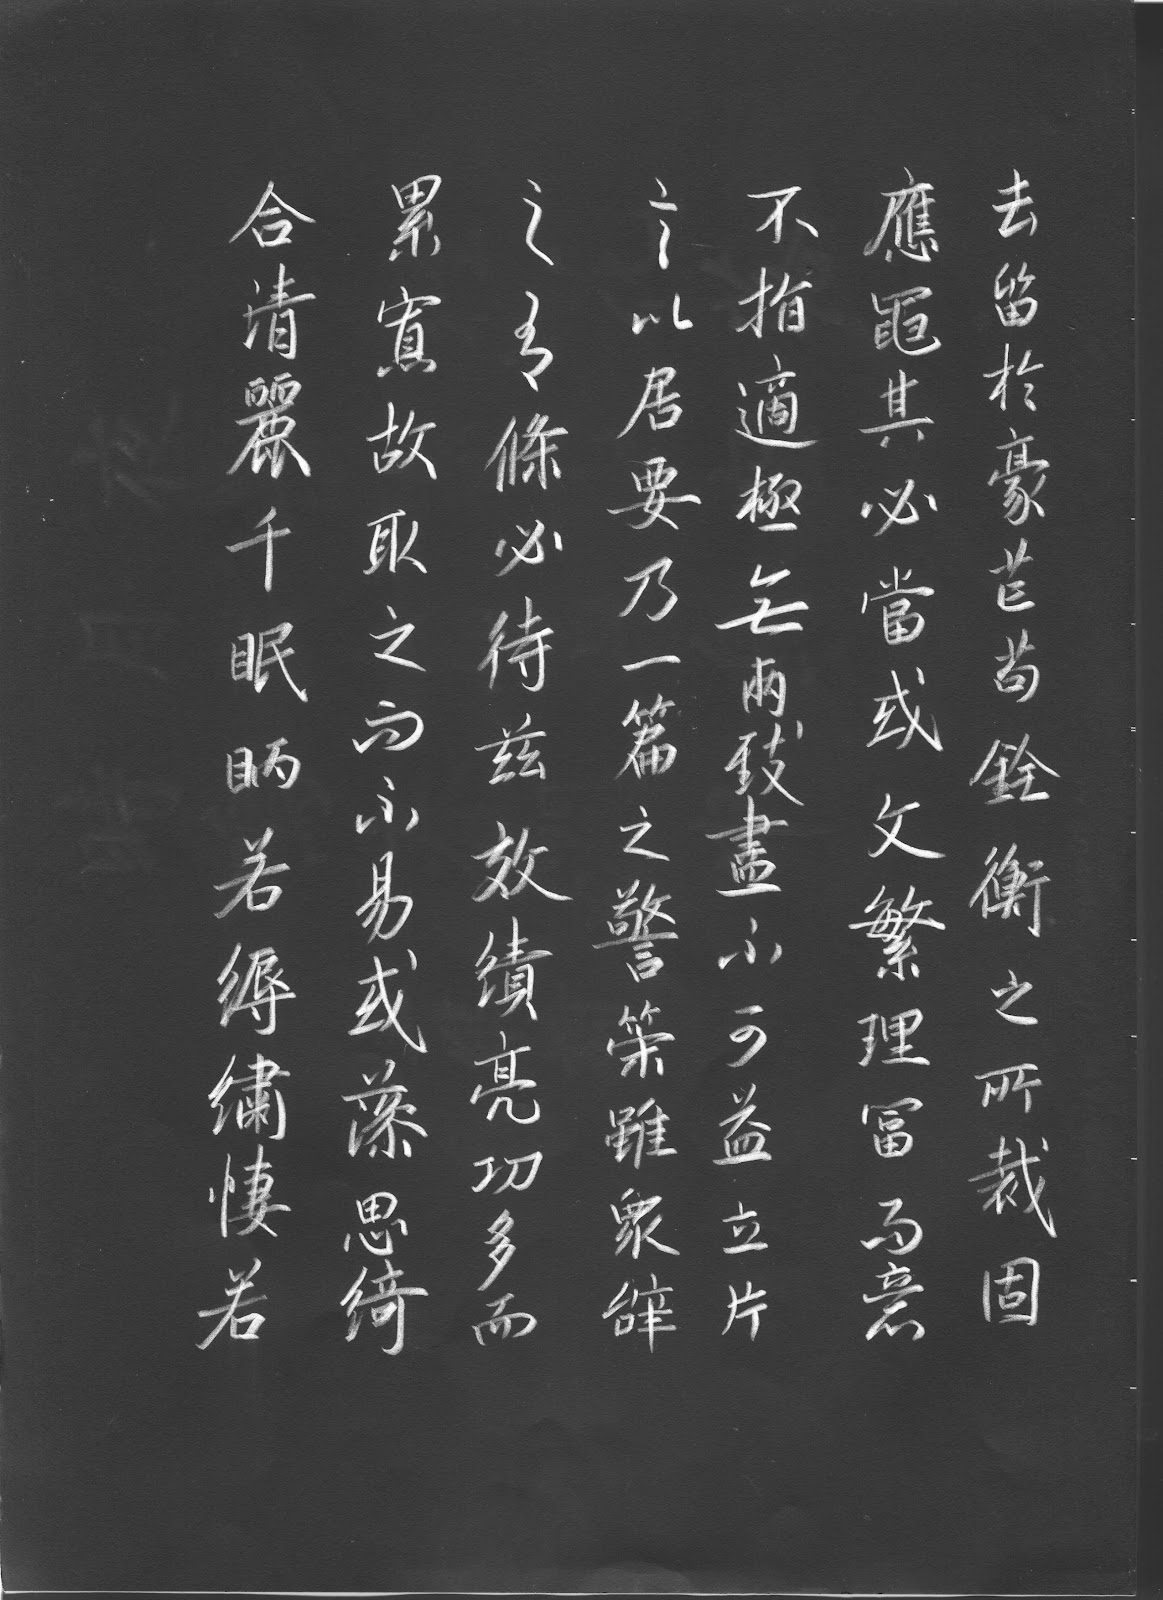 去留於豪芒苟銓衡之所裁固
應繩其必當或文繁理富而意
不指適極無兩致盡不可益立片
言以居要乃一篇之警策雖衆辭
之有條必待茲效績亮功多而
累寡故取之而不易或藻思綺
合清麗千眠炳若縟繡悽若